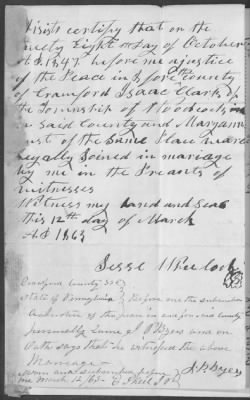 this certify that on the
Eight Day of October
AD 1847 before me a justice
of the Peace in & for County
of Crawford Isaac Clark of
the Township of Woodcock in
said County and
of the same Place were
Legally Joined in marriage
by me in the Presants of
witnesses
Witness my hand and seal
this 12th day of March
AD 1863
Jesse
Crawford County SS
State of Pennsylvania Before me the subscriber
a Justice of the peace in and for said County
personally Came J B Byers and on
Oath says that he witnessed the above
Marriage
Sworn and subscribed before
me March 12/63
J B Byers